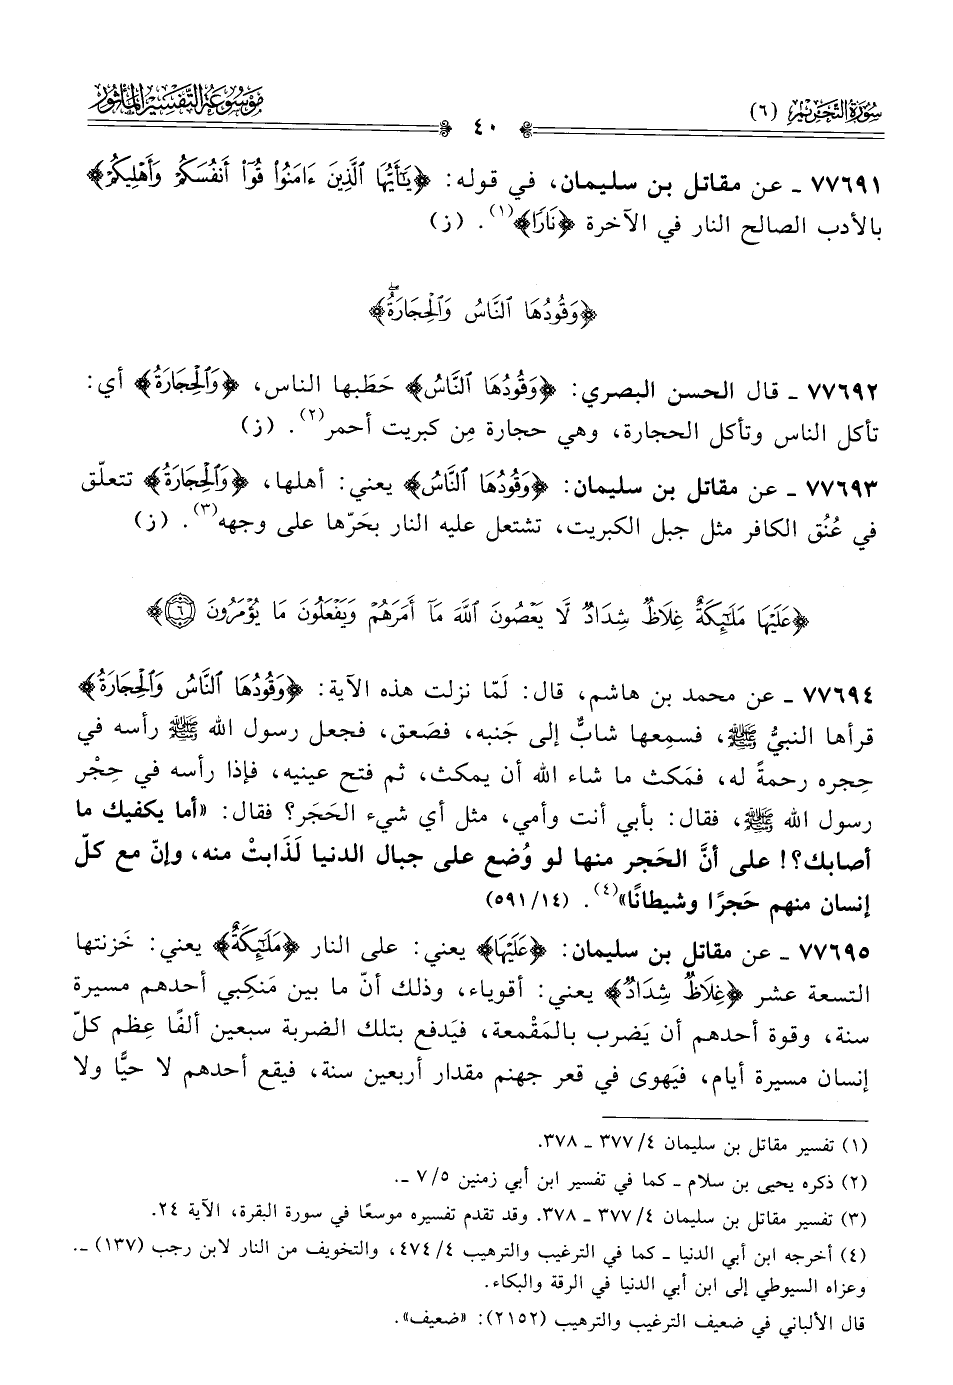 سُورَةُ التَّحْرِيمِ (٦)
٤٠
مَوْسُوعَةُ التَّفْسِيرِ المَأْثُورِ
٧٧٦٩١ ـ عن مقاتل بن سليمان، في قوله: ﴿يَٰٓأَيُّهَا ٱلَّذِينَ ءَامَنُوا۟ قُوٓا۟ أَنفُسَكُمْ وَأَهْلِيكُمْ﴾
بالأدب الصالح النار في الآخرة ﴿نَارًا﴾(١). (ز)
﴿وَقُودُهَا ٱلنَّاسُ وَٱلْحِجَارَةُۖ﴾
٧٧٦٩٢ ـ قال الحسن البصري: ﴿وَقُودُهَا ٱلنَّاسُ﴾ حَطَبها الناس، ﴿وَٱلْحِجَارَةُ﴾ أي:
تأكل الناس وتأكل الحجارة، وهي حجارة مِن كبريت أحمر(٢). (ز)
٧٧٦٩٣ ـ عن مقاتل بن سليمان: ﴿وَقُودُهَا ٱلنَّاسُ﴾ يعني: أهلها، ﴿وَٱلْحِجَارَةُ﴾ تتعلّق
في عُنُق الكافر مثل جبل الكبريت، تشتعل عليه النار بحَرّها على وجهه(٣). (ز)
﴿عَلَيْهَا مَلَٰٓئِكَةٌ غِلَاظٌ شِدَادٌ لَّا يَعْصُونَ ٱللَّهَ مَآ أَمَرَهُمْ وَيَفْعَلُونَ مَا يُؤْمَرُونَ ۝٦﴾
٧٧٦٩٤ ـ عن محمد بن هاشم، قال: لَمّا نزلت هذه الآية: ﴿وَقُودُهَا ٱلنَّاسُ وَٱلْحِجَارَةُ﴾
قرأها النبيُّ ﷺ، فسمِعها شابٌّ إلى جَنبه، فصَعق، فجعل رسول الله ﷺ رأسه في
حِجره رحمةً له، فمَكث ما شاء الله أن يمكث، ثم فتح عينيه، فإذا رأسه في حِجْر
رسول الله ﷺ، فقال: بأبي أنت وأمي، مثل أي شيء الحَجَر؟ فقال: «أما يكفيك ما
أصابك؟! على أنَّ الحَجر منها لو وُضع على جبال الدنيا لَذَابتْ منه، وإنّ مع كلّ
إنسان منهم حَجرًا وشيطانًا»(٤). (٥٩١/١٤)
٧٧٦٩٥ ـ عن مقاتل بن سليمان: ﴿عَلَيْهَا﴾ يعني: على النار ﴿مَلَٰٓئِكَةٌ﴾ يعني: خَزنتها
التسعة عشر ﴿غِلَاظٌ شِدَادٌ﴾ يعني: أقوياء، وذلك أنّ ما بين مَنكِبي أحدهم مسيرة
سنة، وقوة أحدهم أن يَضرب بالمَقْمعة، فيَدفع بتلك الضربة سبعين ألفًا عِظم كلّ
إنسان مسيرة أيام، فيَهوى في قعر جهنم مقدار أربعين سنة، فيقع أحدهم لا حيًّا ولا
(١) تفسير مقاتل بن سليمان ٤/ ٣٧٧ ـ ٣٧٨.
(٢) ذكره يحيى بن سلام ـ كما في تفسير ابن أبي زمنين ٥/ ٧ ـ.
(٣) تفسير مقاتل بن سليمان ٤/ ٣٧٧ ـ ٣٧٨. وقد تقدم تفسيره موسعًا في سورة البقرة، الآية ٢٤.
(٤) أخرجه ابن أبي الدنيا ـ كما في الترغيب والترهيب ٤/ ٤٧٤، والتخويف من النار لابن رجب (١٣٧) ـ.
وعزاه السيوطي إلى ابن أبي الدنيا في الرقة والبكاء.
قال الألباني في ضعيف الترغيب والترهيب (٢١٥٢): «ضعيف».